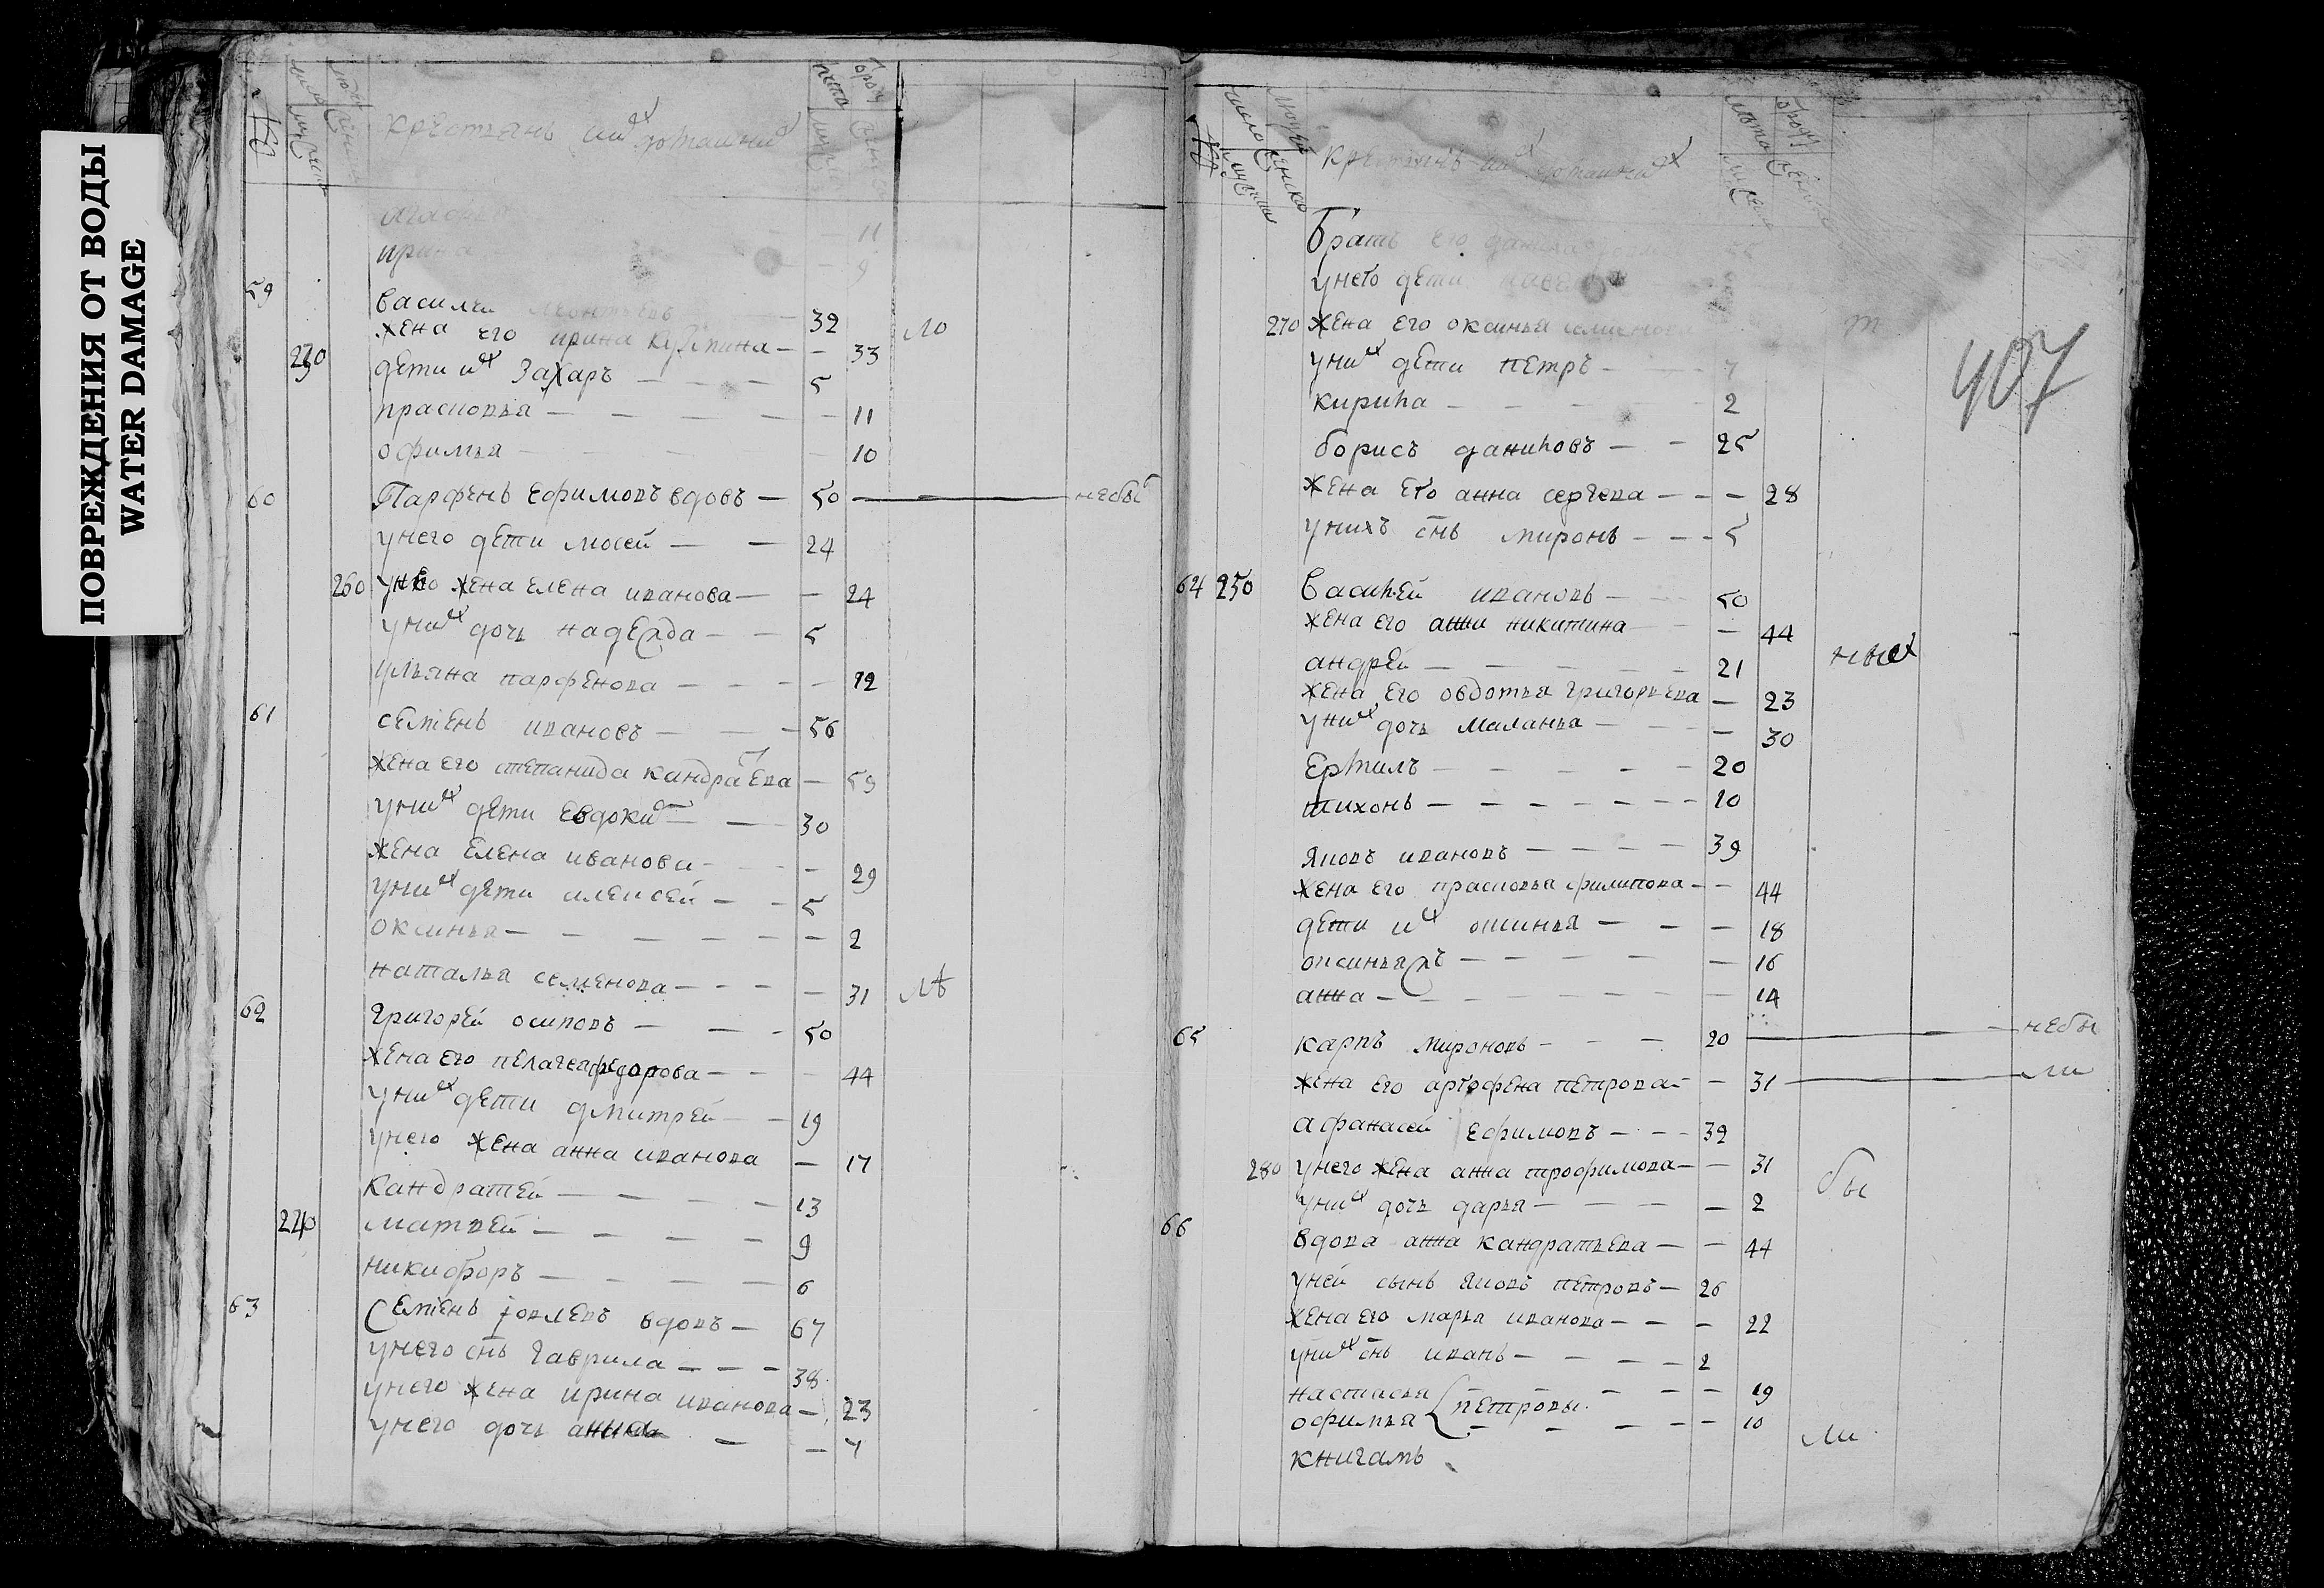 ПОВРЕЖДЕНИЯ ОТ ВОДЫ
WATER DAMAGE
крестьянъ
ирина 9
59 василей леонтьевъ 32
жена его ирина 33 ло
230 дети их Захаръ 5
прасковья 11
офимья 10
60 Парфенъ ефимовъ вдовъ 50 небы
унего дети мосей 24
260 унево жена елена иванова 24
уних дочь надежда 5
ульяна парфенова 12
61 семенъ ивановъ 56
жена его степанида кандратева 59
уних дети евдоким 30
жена елена иванова 29
уних дети алексей 5
оксинья 2
наталья семенова 31 лѣ
62 григорей осиповъ 50
жена его пелагеа федорова 44
уних дети дмитрей 19
унего жена анна иванова 17
кандратей 13
240 матвей 9
никифоръ 6
63 Семенъ иовлевъ вдовъ 67
унего снъ гаврила 38
унего жена ирина иванова 23
унего дочь 4
крестьянъ
братъ его
унего дети
270 жена его оксинья т
уних дети петръ 7
кирила 2
407
борисъ даниловъ 25
жена его анна сергева 28
унихъ снъ миронъ 5
64 250 василей ивановъ 50
жена его анни никитина 44
андрей 21 ных
жена его овдотья григорьева 23
уних дочь маланья 30
ермилъ 20
тихонъ 10
яковъ ивановъ 39
жена его прасковья филипова 44
дети их оксинья 18
оксинья жъ 16
анна 14
65 карпъ мироновъ 20 небы
жена его аграфена петрова 31 ли
афанасей ефимовъ 32
280 унего жена анна трофимова 31 бы
уних дочь дарья 2
66 вдова анна кандратьева 44
уней сынъ яковъ петровъ 26
жена его марья иванова 22
уних снъ иванъ 2
настасья 19
петровы
офимья 10
ли
книгамъ